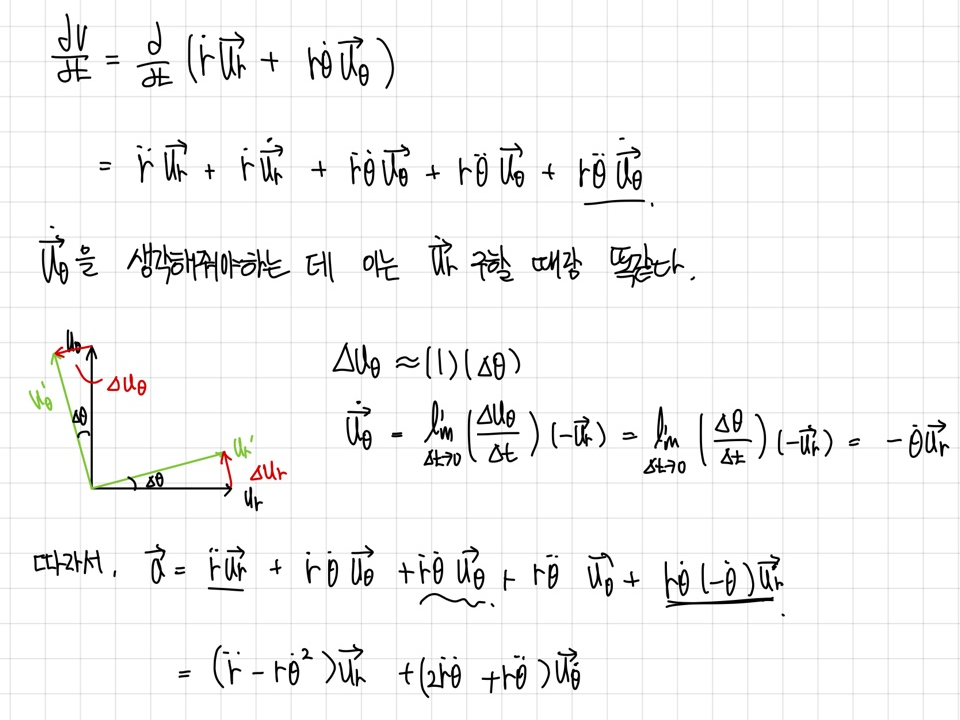 dv/dt = d/dt (ṙu⃗r + rθ̇u⃗θ)
= r̈u⃗r + ṙu⃗̇r + ṙθ̇u⃗θ + rθ̈u⃗θ + rθ̈u⃗̇θ.
u⃗̇θ을 생각해줘야하는 데 이는 u⃗̇r 구할 때랑 똑같다.
uθ
Δuθ
u'θ
Δθ
ur'
Δur
Δθ
ur
Δuθ ≈ (1)(Δθ)
u⃗̇θ = lim Δt→0 (Δuθ/Δt)(-u⃗r) = lim Δt→0 (Δθ/Δt)(-u⃗r) = -θ̇u⃗r
따라서, a⃗ = r̈u⃗r + ṙθ̇u⃗θ + ṙθ̇u⃗θ + rθ̈u⃗θ + rθ̇(-θ̇)u⃗r.
= (r̈ - rθ̇²)u⃗r + (2ṙθ̇ + rθ̈)u⃗θ